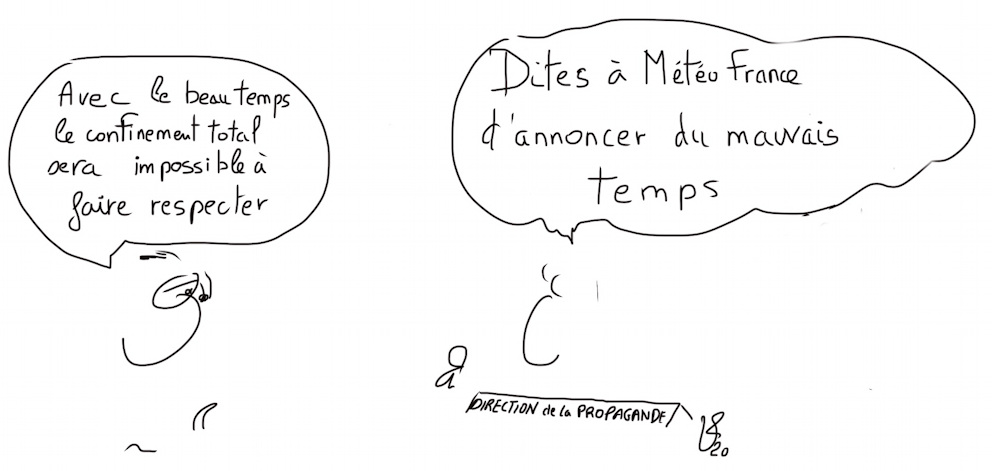 Avec le beau temps
le confinement total
sera impossible à
faire respecter
Dites à Météo France
d'annoncer du mauvais
temps
DIRECTION de la PROPAGANDE
20